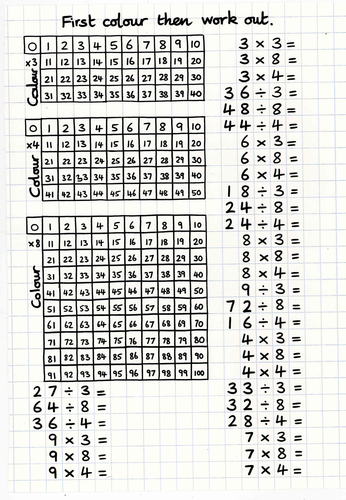 First colour then work out.
0 1 2 3 4 5 6 7 8 9 10
x3 11 12 13 14 15 16 17 18 19 20
21 22 23 24 25 26 27 28 29 30
31 32 33 34 35 36 37 38 39 40
Colour
0 1 2 3 4 5 6 7 8 9 10
x4 11 12 13 14 15 16 17 18 19 20
21 22 23 24 25 26 27 28 29 30
31 32 33 34 35 36 37 38 39 40
41 42 43 44 45 46 47 48 49 50
Colour
0 1 2 3 4 5 6 7 8 9 10
x8 11 12 13 14 15 16 17 18 19 20
21 22 23 24 25 26 27 28 29 30
31 32 33 34 35 36 37 38 39 40
41 42 43 44 45 46 47 48 49 50
51 52 53 54 55 56 57 58 59 60
61 62 63 64 65 66 67 68 69 70
71 72 73 74 75 76 77 78 79 80
81 82 83 84 85 86 87 88 89 90
91 92 93 94 95 96 97 98 99 100
Colour
27 ÷ 3 =
64 ÷ 8 =
36 ÷ 4 =
9 × 3 =
9 × 8 =
9 × 4 =
3 × 3 =
3 × 8 =
3 × 4 =
36 ÷ 3 =
48 ÷ 8 =
44 ÷ 4 =
6 × 3 =
6 × 8 =
6 × 4 =
18 ÷ 3 =
24 ÷ 8 =
24 ÷ 4 =
8 × 3 =
8 × 8 =
8 × 4 =
9 ÷ 3 =
72 ÷ 8 =
16 ÷ 4 =
4 × 3 =
4 × 8 =
4 × 4 =
33 ÷ 3 =
32 ÷ 8 =
28 ÷ 4 =
7 × 3 =
7 × 8 =
7 × 4 =